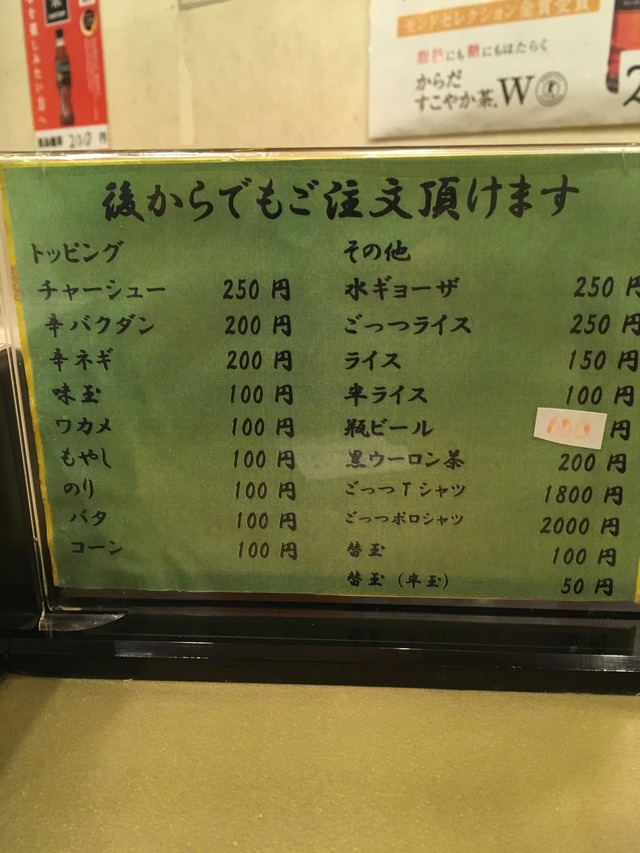 を楽しみたい方へ
200 円
モンドセレクション金賞受賞
脂肪にも糖にもはたらく
からだ
すこやか茶。W
後からでもご注文頂けます
トッピング
チャーシュー 250 円
辛バクダン 200 円
辛ネギ 200 円
味玉 100 円
ワカメ 100 円
もやし 100 円
のり 100 円
バタ 100 円
コーン 100 円
その他
水ギョーザ 250 円
ごっつライス 250 円
ライス 150 円
半ライス 100 円
瓶ビール 600 円
黒ウーロン茶 200 円
ごっつTシャツ 1800 円
ごっつポロシャツ 2000 円
替玉 100 円
替玉(半玉) 50 円